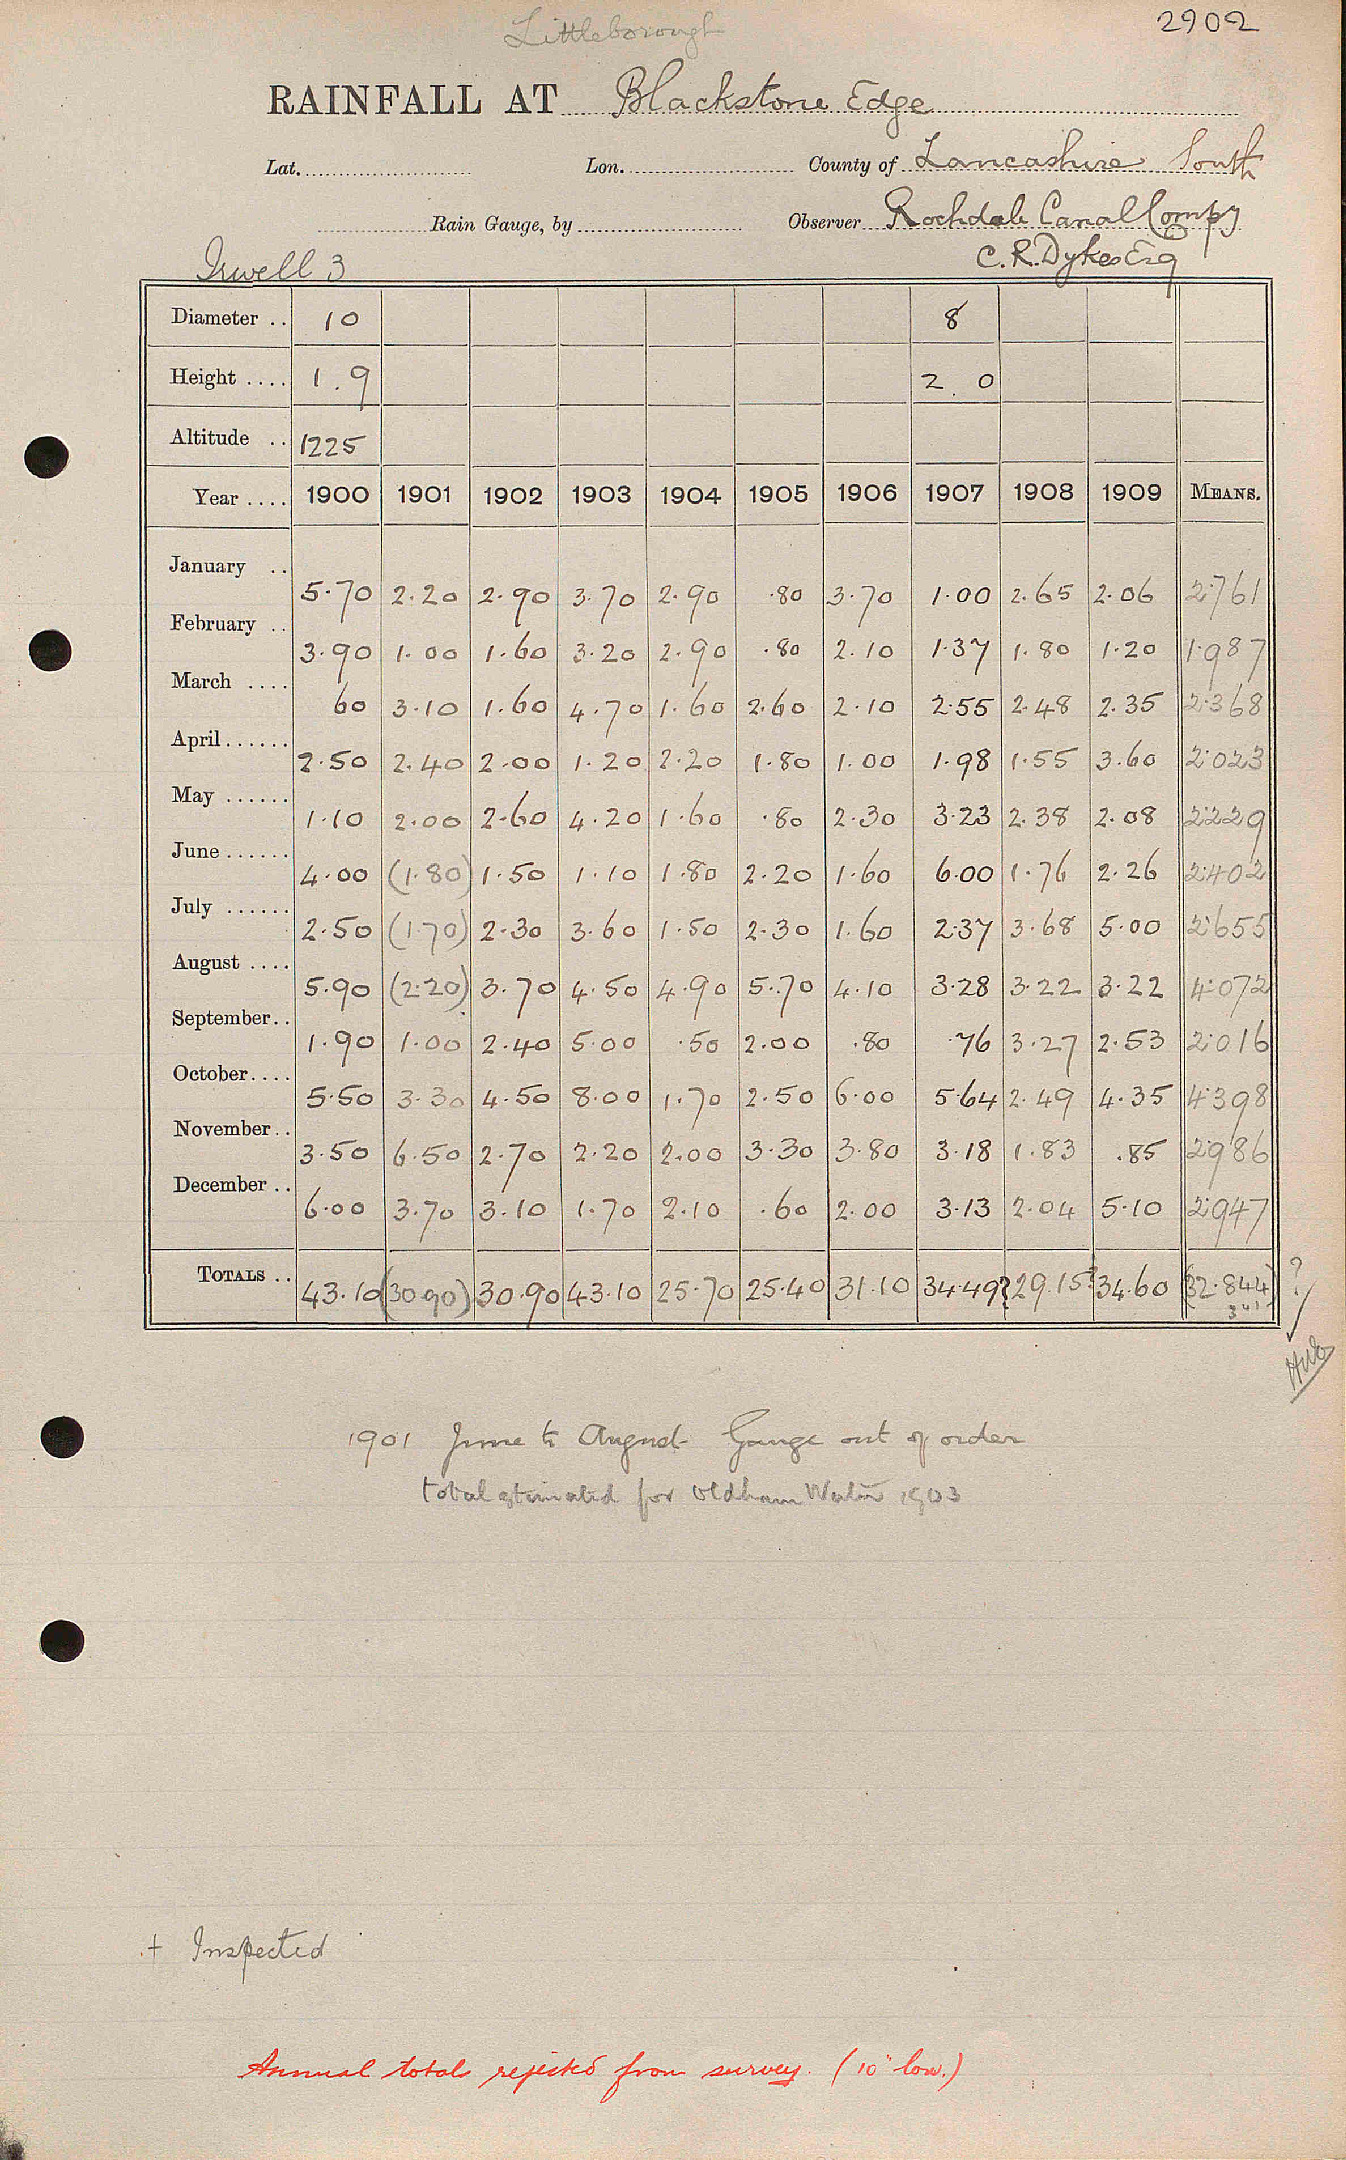 Littleborough 2902
RAINFALL AT Blackstone Edge
Lat. Lon. County of Lancashire South
Rain Gauge, by Observer Rochdale Canal Compy
Irwell 3 C. R. Dykes Esq
Diameter .. 10 8
Height .... 1.9 2.0
Altitude .. 1225
Year .... 1900 1901 1902 1903 1904 1905 1906 1907 1908 1909 MEANS.
January .. 5.70 2.20 2.90 3.70 2.90 .80 3.70 1.00 2.65 2.06 2.761
February .. 3.90 1.00 1.60 3.20 2.90 .80 2.10 1.37 1.80 1.20 1.987
March .... 60 3.10 1.60 4.70 1.60 2.60 2.10 2.55 2.48 2.35 2.368
April...... 2.50 2.40 2.00 1.20 2.20 1.80 1.00 1.98 1.55 3.60 2.023
May ...... 1.10 2.00 2.60 4.20 1.60 .80 2.30 3.23 2.38 2.08 2.229
June...... 4.00 (1.80) 1.50 1.10 1.80 2.20 1.60 6.00 1.76 2.26 2.402
July ...... 2.50 (1.70) 2.30 3.60 1.50 2.30 1.60 2.37 3.68 5.00 2.655
August .... 5.90 (2.20) 3.70 4.50 4.90 5.70 4.10 3.28 3.22 3.22 4.072
September.. 1.90 1.00 2.40 5.00 .50 2.00 .80 .76 3.27 2.53 2.016
October.... 5.50 3.30 4.50 8.00 1.70 2.50 6.00 5.64 2.49 4.35 4.398
November.. 3.50 6.50 2.70 2.20 2.00 3.30 3.80 3.18 1.83 .85 2.986
December .. 6.00 3.70 3.10 1.70 2.10 .60 2.00 3.13 2.04 5.10 2.947
TOTALS .. 43.10 (30.90) 30.90 43.10 25.70 25.40 31.10 34.49? 29.15? 34.60 (32.844) ?
1901 June to August Gauge out of order
total estimated for Oldham Water 1903
+ Inspected
Annual totals rejected from survey. (10" low.)